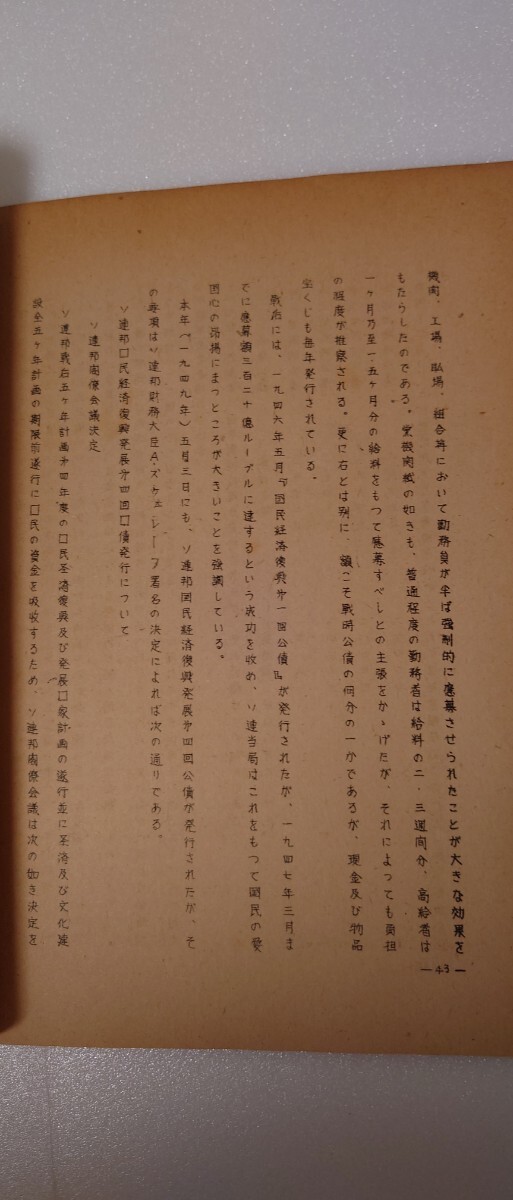 機関、工場、職場、組合等において勤務員が半ば強制的に應募させられたことが大きな効果を
もたらしたのである。党機関紙の如きも、普通程度の勤務者は給料の二・三週间分、高給者は
一ヶ月乃至一・五ヶ月分の給料をもつて應募すべしとの主張をかゝげたが、それによつても負担
の程度が推察される。更に右とは別に、額こそ戦時公債の何分の一かであるが、現金及び物品
宝くじも毎年発行されている。
戦后には、一九四六年五月『国民経済復興才一回公債』が発行されたが、一九四七年三月ま
でに應募額三百二十億ルーブルに達するという成功を收め、ソ連当局はこれをもつて国民の愛
国心の昂揚にまつところが大きいことを強調している。
本年(一九四九年)五月三日にも、ソ連邦国民経済復興発展才四回公債が発行されたが、そ
の要項はソ連邦財務大臣A・ズヴェーレーフ署名の決定によれば次の通りである。
ソ連邦口民経済復興発展才四回口債発行について
ソ連邦閣僚会議決定
ソ連邦戦后五ヶ年計画才四年度の口民圣済復興及び発展口家計画の遂行並に圣済及び文化建
設全五ヶ年計画の期限前遂行に口民の資金を吸收するため、ソ連邦閣僚会議は次の如き決定を
—43—